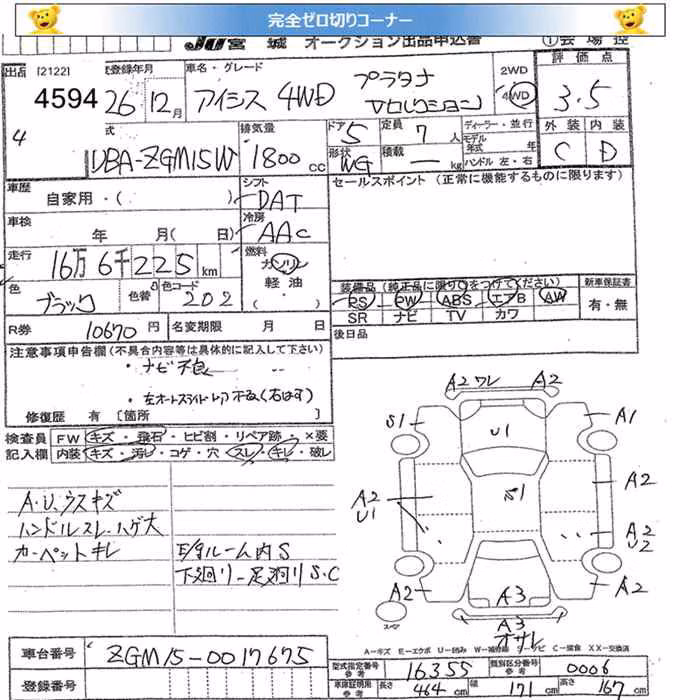 完全ゼロ切りコーナー
JU宮城 オークション出品申込書 ①会場控
出品 [2122] 登録年月 車名・グレード 2WD 4WD 評価点
4594 26 12月 アイシス 4WD プラタナ 3.5
4
DBA-ZGM15W 排気量 1800cc ドア 5 定員 7人 ディーラー・並行 外装 内装
形状 WG 積載 ー kg モデル年式 年 ハンドル 左・右 C D
車歴 自家用・( ) シフト DAT セールスポイント (正常に機能するものに限ります)
車検 年 月( 日) 冷房 AAC
走行 16万6千225km 燃料 ガソリン 軽油 ・( )
色 ブラック 色替 色コード 202 装備品(純正品に限り○をつけてください) 新車保証書
PS PW ABS エアB AW 有・無
SR ナビ TV カワ
R券 10670円 名変期限 月 日 後日品
注意事項申告欄(不具合内容等は具体的に記入して下さい)
・ナビ不良
修復歴 有 [箇所 ]
検査員 FW キズ・飛石・ヒビ割・リペア跡・×要
記入欄 内装 キズ・汚レ・コゲ・穴・スレ・キレ・破レ
A.U.ウスキズ
ハンドルスレ・ハゲ大
カーペットキレ
E/gルーム内S
下廻リー足廻リS.C
A2ワレ A2
S1 A1
U1
A2 U1 A2
A2 U2
A2 A2
A3
A3
オサレ
スペア
A-キズ E-エクボ U-凹み W-補修跡 S-サビ C-腐食 XX-交換済
車台番号 ZGM15-0017675
登録番号
型式指定番号 参考 16355 類別区分番号 参考 0006
車庫証明用 参考 長さ 464cm 幅 171cm 高さ 167cm